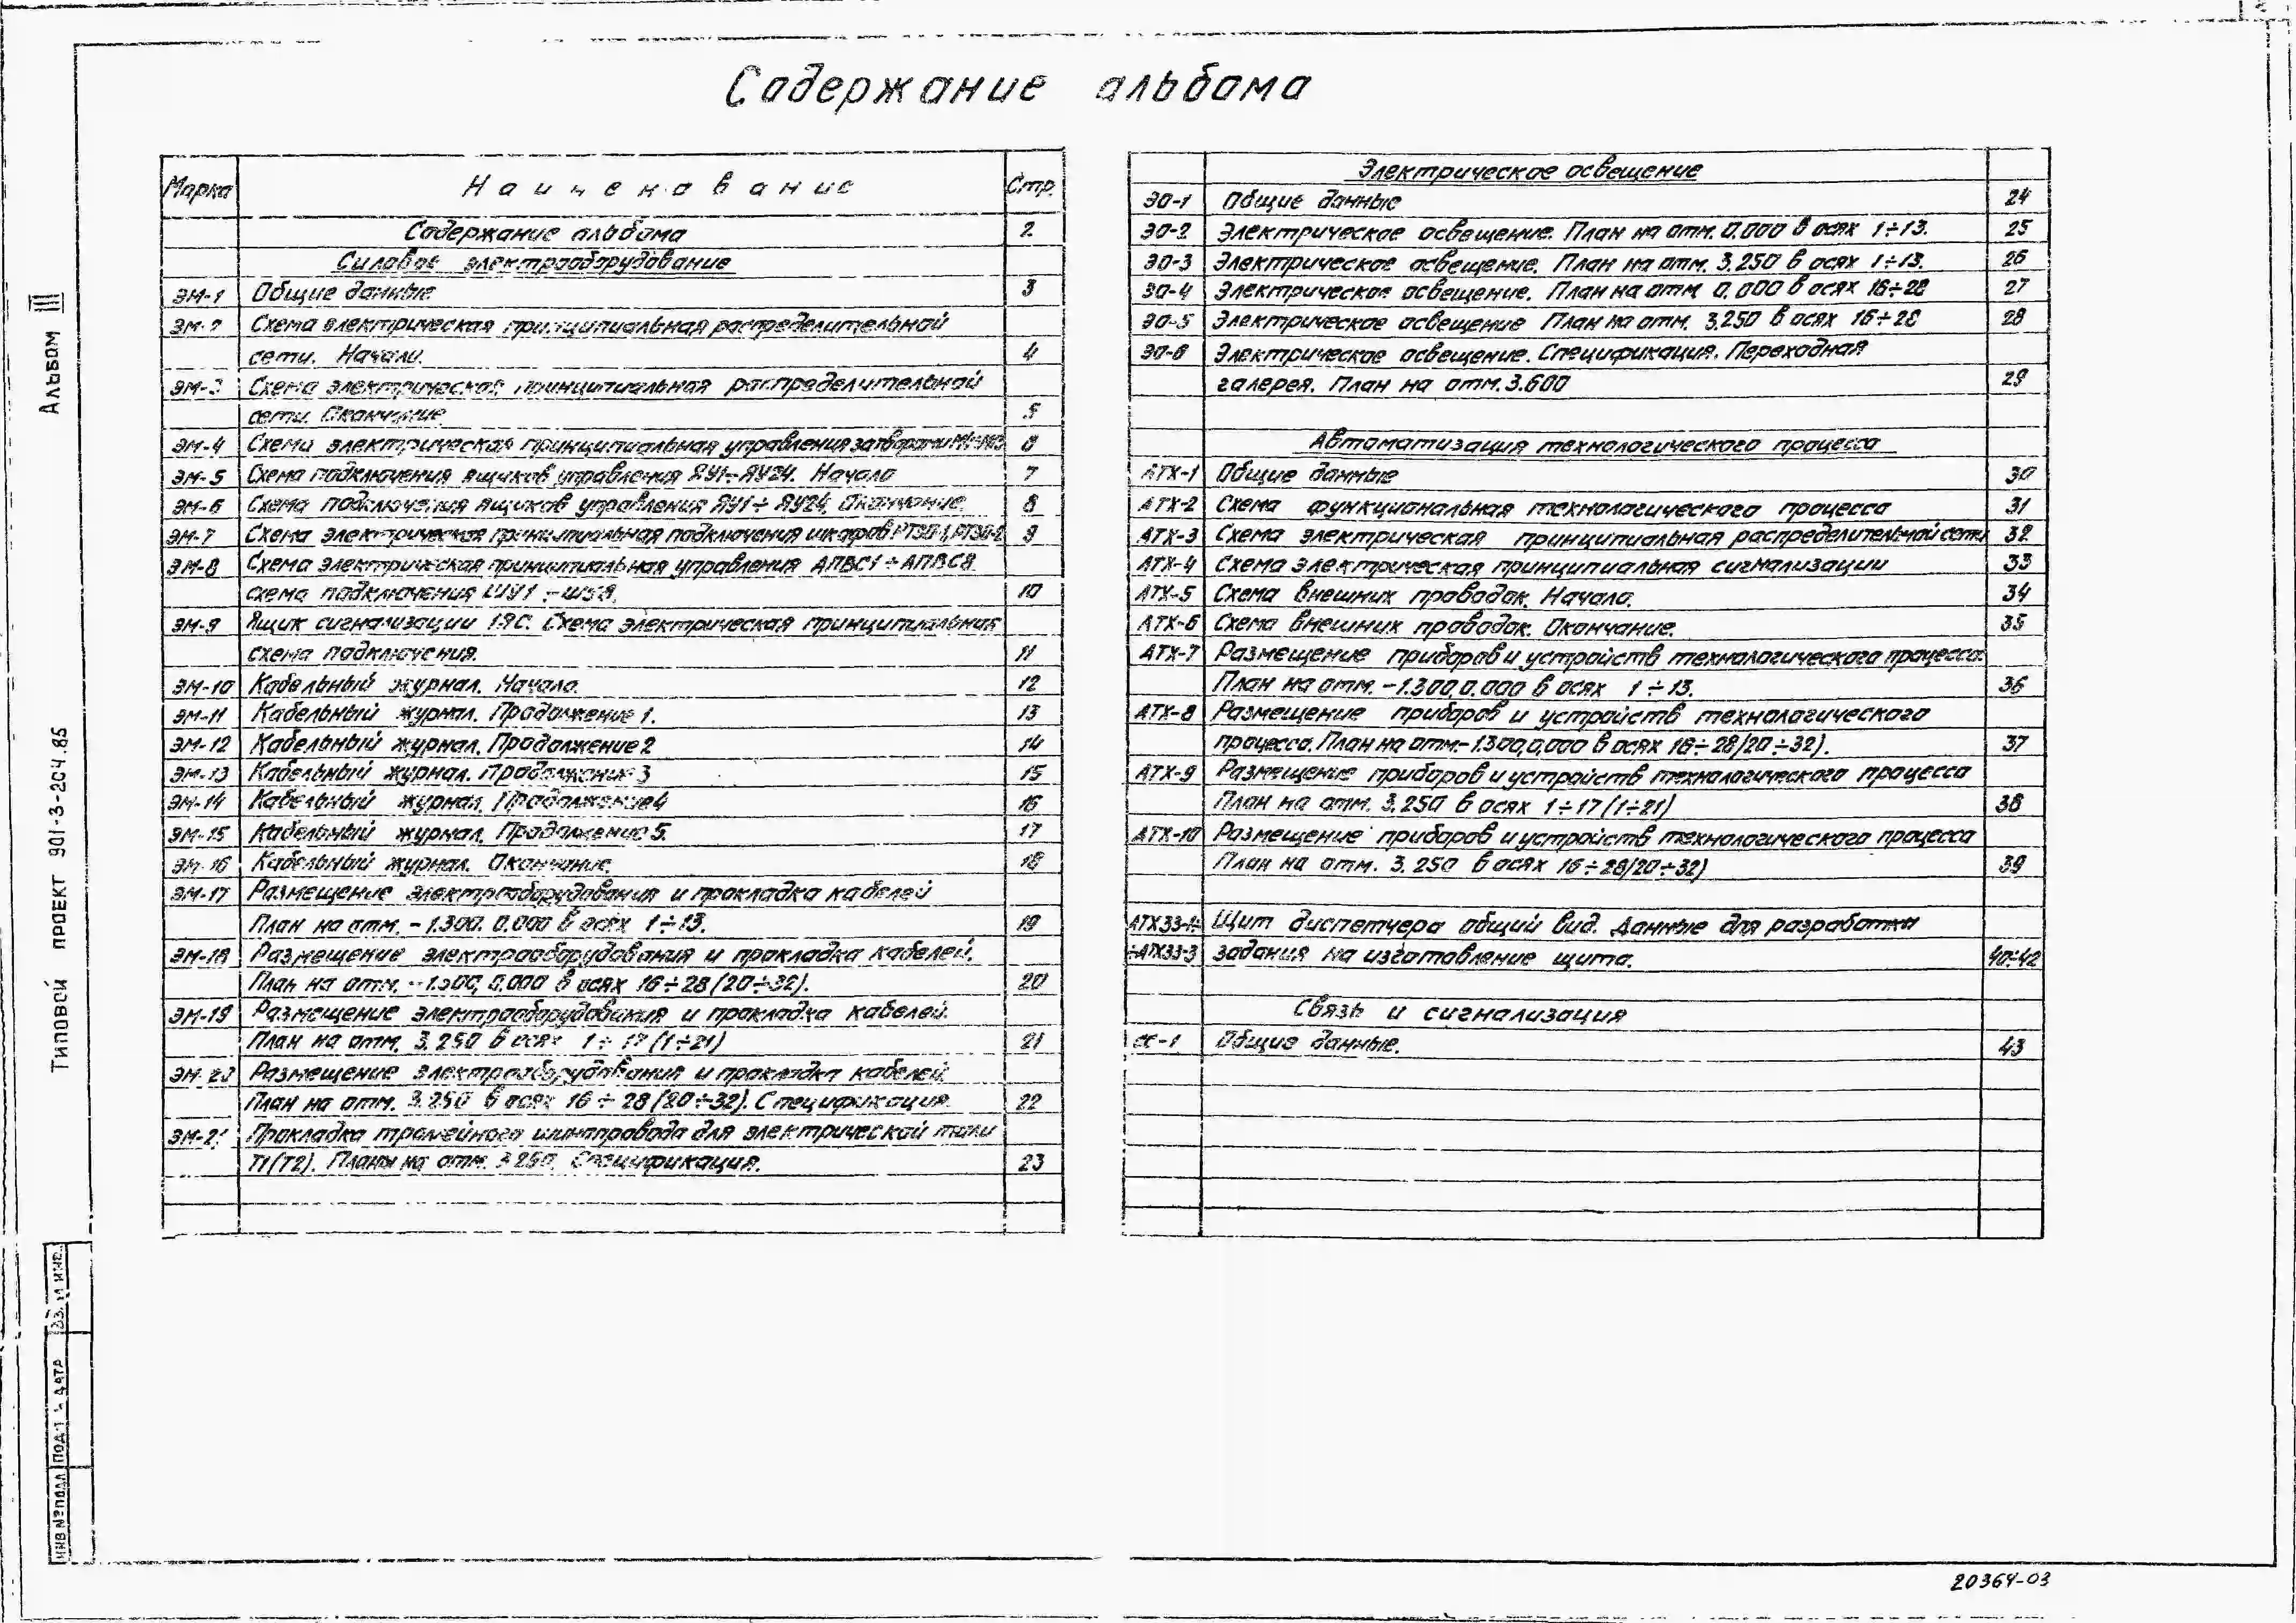 2
Содержание альбома
Марка Наименование Стр.
Содержание альбома 2
Силовое электрооборудование
ЭМ-1 Общие данные 3
ЭМ-2 Схема электрическая принципиальная распределительной
сети. Начало. 4
ЭМ-3 Схема электрическая принципиальная распределительной
сети. Окончание 5
ЭМ-4 Схема электрическая принципиальная управления затворами 6
ЭМ-5 Схема подключения ящиков управления ЯУ1÷ЯУ24. Начало 7
ЭМ-6 Схема подключения ящиков управления ЯУ1÷ЯУ24. Окончание 8
ЭМ-7 Схема электрическая принципиальная подключения шкафов 9
ЭМ-8 Схема электрическая принципиальная управления АПВС1÷АПВС8
схема подключения 10
ЭМ-9 Ящик сигнализации 1ЯС. Схема электрическая принципиальная
схема подключения. 11
ЭМ-10 Кабельный журнал. Начало. 12
ЭМ-11 Кабельный журнал. Продолжение 1. 13
ЭМ-12 Кабельный журнал. Продолжение 2 14
ЭМ-13 Кабельный журнал. Продолжение 3 15
ЭМ-14 Кабельный журнал. Продолжение 4 16
ЭМ-15 Кабельный журнал. Продолжение 5. 17
ЭМ-16 Кабельный журнал. Окончание. 18
ЭМ-17 Размещение электрооборудования и прокладка кабелей
План на отм. -1.300. 0.000 в осях 1÷13. 19
ЭМ-18 Размещение электрооборудования и прокладка кабелей.
План на отм. -1.300, 0.000 в осях 16÷28 (20÷32). 20
ЭМ-19 Размещение электрооборудования и прокладка кабелей.
План на отм. 3.250 в осях 1÷17 (1÷21) 21
ЭМ-20 Размещение электрооборудования и прокладка кабелей.
План на отм. 3.250 в осях 16÷28 (20÷32). Спецификация. 22
ЭМ-21 Прокладка троллейного шинопровода для электрической тали
Т1(Т2). Планы на отм. 3.250. Спецификация. 23
Электрическое освещение
ЭО-1 Общие данные 24
ЭО-2 Электрическое освещение. План на отм. 0.000 в осях 1÷13. 25
ЭО-3 Электрическое освещение. План на отм. 3.250 в осях 1÷13. 26
ЭО-4 Электрическое освещение. План на отм. 0.000 в осях 16÷28 27
ЭО-5 Электрическое освещение План на отм. 3.250 в осях 16÷28 28
ЭО-6 Электрическое освещение. Спецификация. Переходная
галерея. План на отм. 3.600 29
Автоматизация технологического процесса
АТХ-1 Общие данные 30
АТХ-2 Схема функциональная технологического процесса 31
АТХ-3 Схема электрическая принципиальная распределительной сети 32
АТХ-4 Схема электрическая принципиальная сигнализации 33
АТХ-5 Схема внешних проводок. Начало. 34
АТХ-6 Схема внешних проводок. Окончание. 35
АТХ-7 Размещение приборов и устройств технологического процесса.
План на отм. -1.300, 0.000 в осях 1÷13. 36
АТХ-8 Размещение приборов и устройств технологического
процесса. План на отм. -1.300, 0.000 в осях 16÷28 (20÷32). 37
АТХ-9 Размещение приборов и устройств технологического процесса
План на отм. 3.250 в осях 1÷17 (1÷21) 38
АТХ-10 Размещение приборов и устройств технологического процесса
План на отм. 3.250 в осях 16÷28 (20÷32) 39
АТХ33-1÷ Щит диспетчера общий вид. Данные для разработки
÷АТХ33-3 задания на изготовление щита. 40÷42
Связь и сигнализация
СС-1 Общие данные. 43
Альбом III
Типовой проект 901-3-204.85
Инв № подл Подп. и дата Вз. и инв.
20364-03